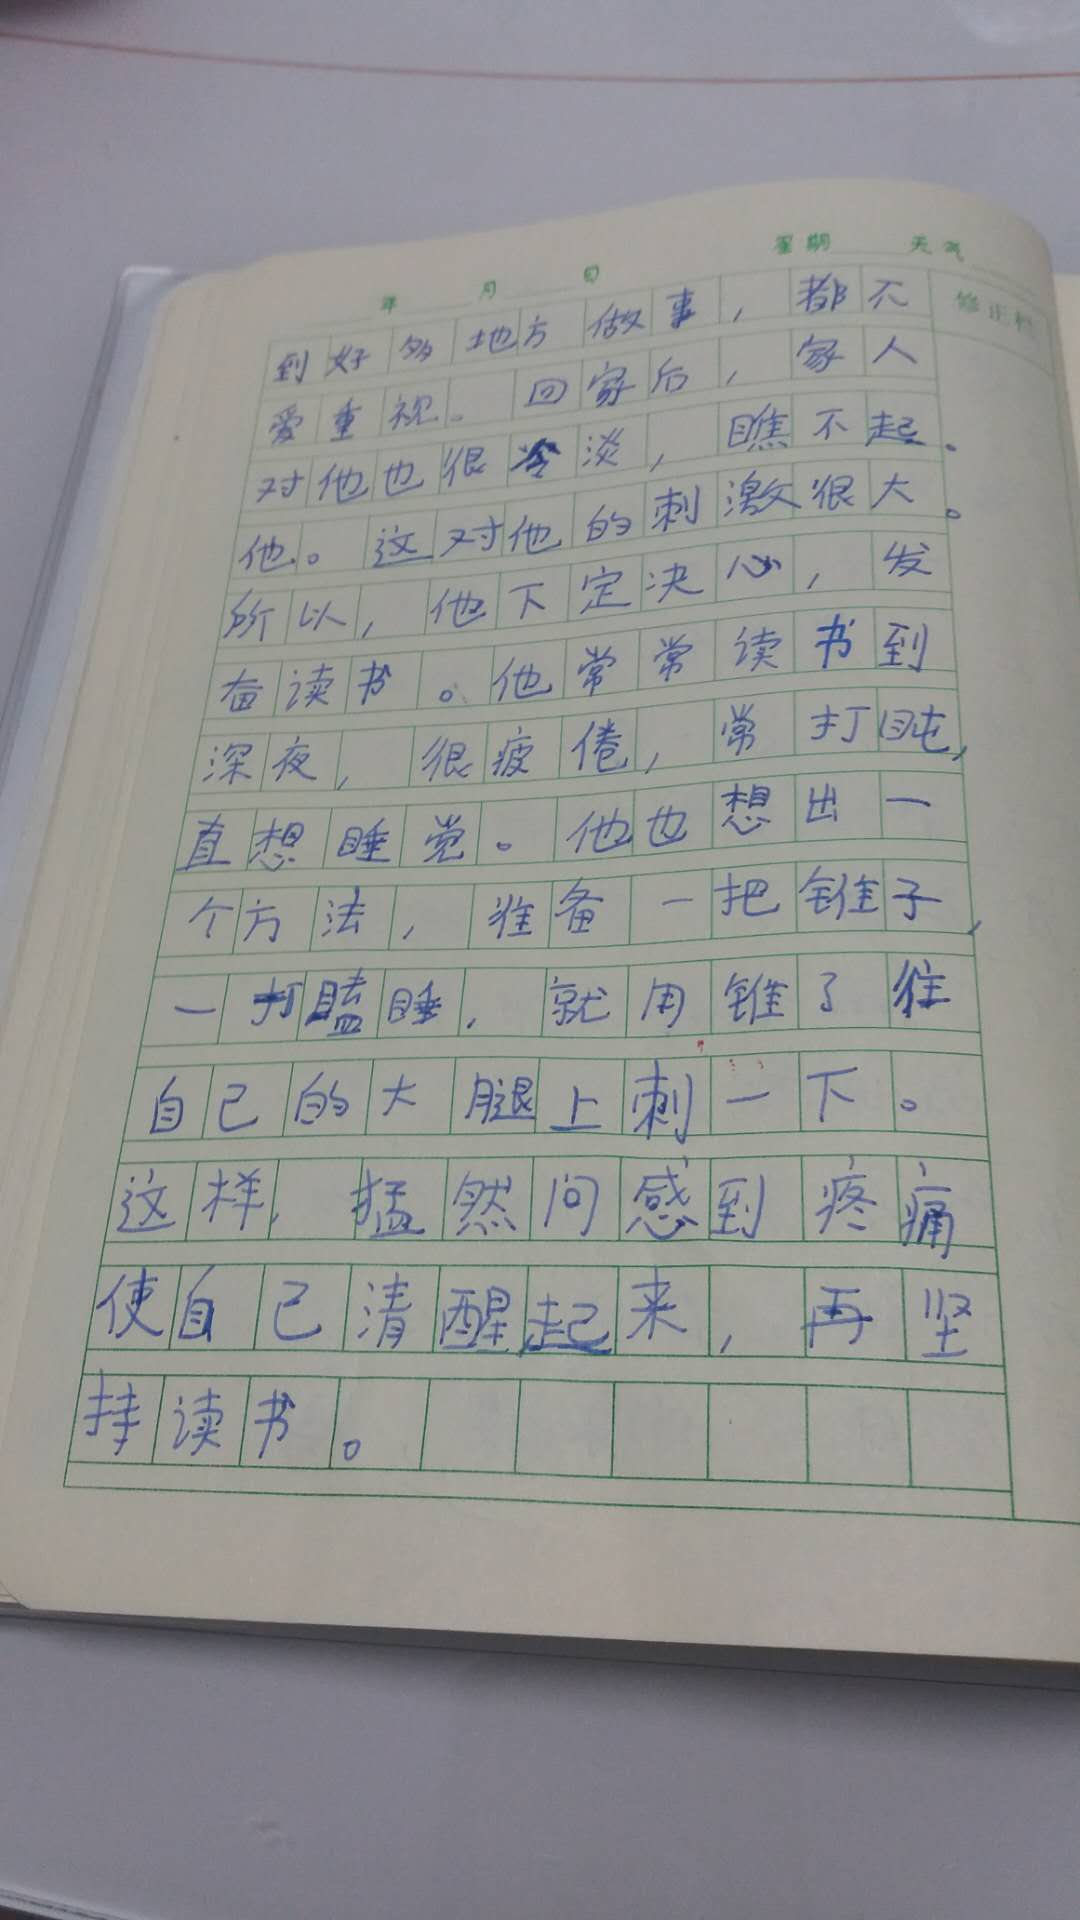 年 月 日 星期 天气
修正栏
到好多地方做事，都不
爱重视。回家后，家人
对他也很冷淡，瞧不起.
他。这对他的刺激很大。
所以，他下定决心，发
奋读书。他常常读书到
深夜，很疲倦，常打盹，
直想睡觉。他也想出一
个方法，准备一把锥子，
一打瞌睡，就用锥了往
自己的大腿上刺一下。
这样，猛然间感到疼痛
使自己清醒起来，再坚
持读书。